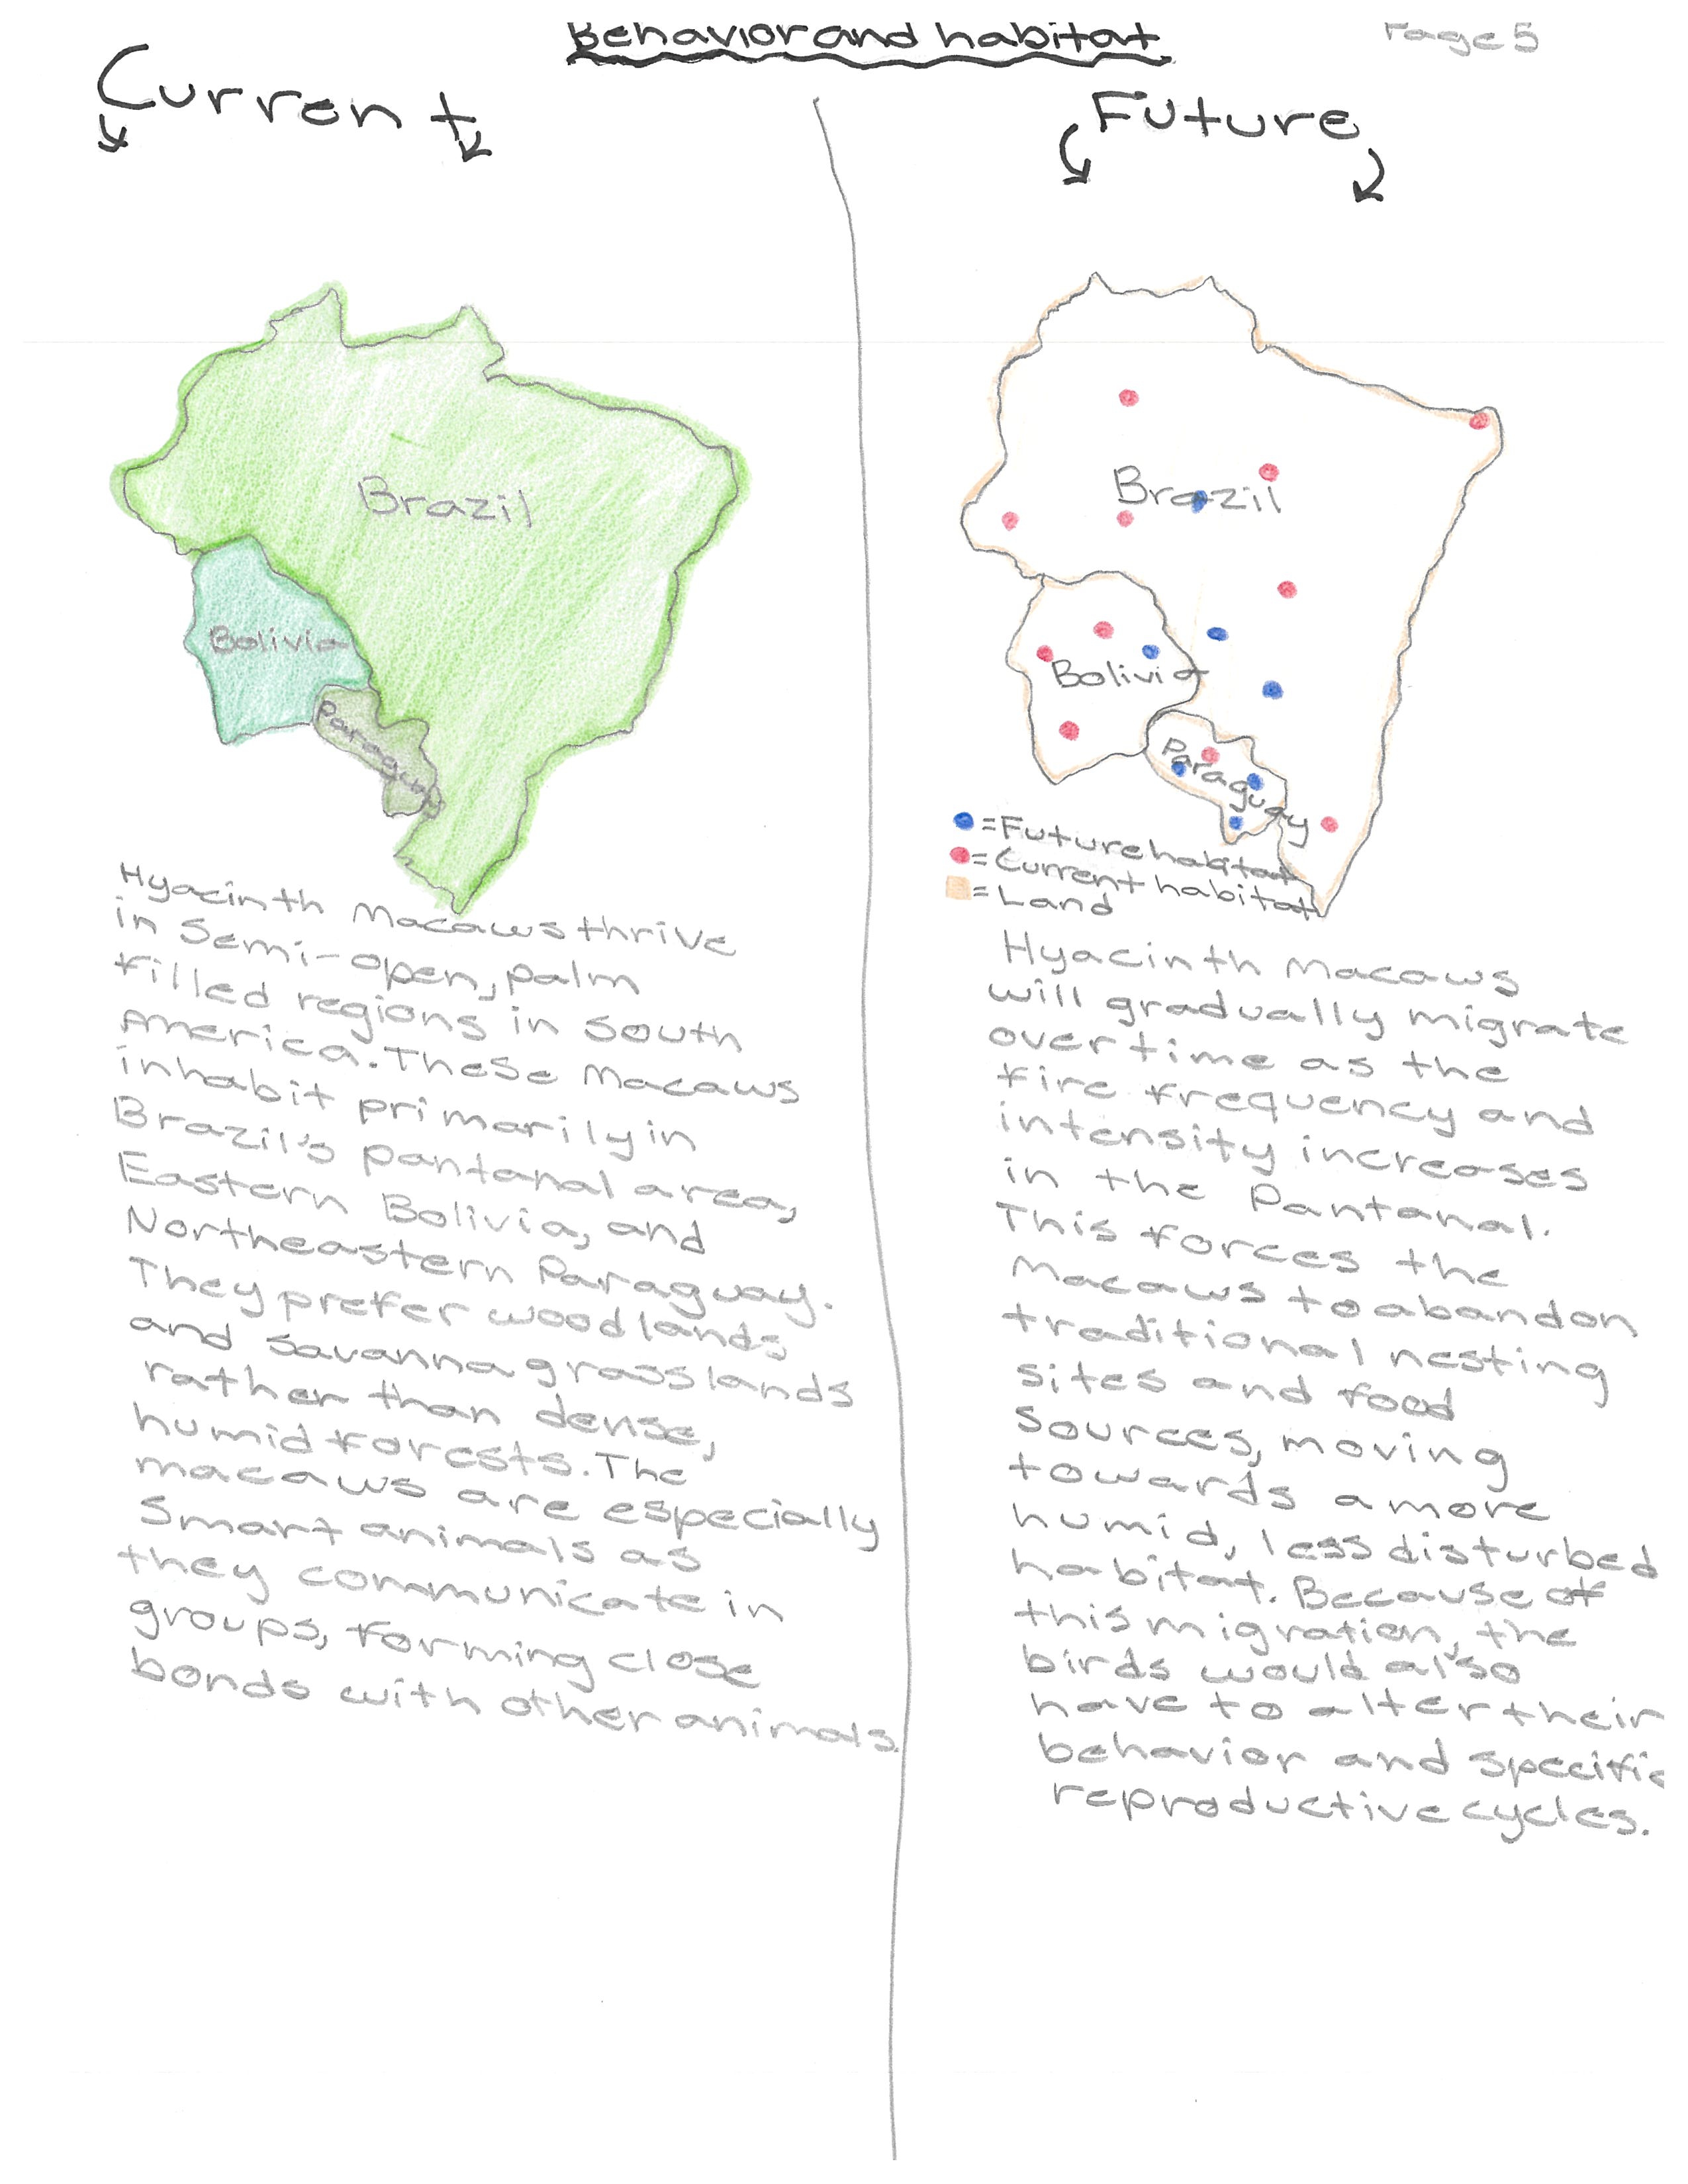 Behavior and habitat
Page 5
Current
Brazil
Bolivia
Paraguay
Hyacinth Macaws thrive
in Semi-open, palm
filled regions in South
America. These Macaws
inhabit primarily in
Brazil's pantanal area,
Eastern Bolivia, and
Northeastern Paraguay.
They prefer woodlands
and Savanna grasslands
rather than dense,
humid forests. The
macaws are especially
smart animals as
they communicate in
groups, forming close
bonds with other animals.
Future
Brazil
Bolivia
Paraguay
=Future habitat
=Current habitat
=Land
Hyacinth Macaws
will gradually migrate
over time as the
fire frequency and
intensity increases
in the Pantanal.
This forces the
Macaws to abandon
traditional nesting
sites and food
sources, moving
towards a more
humid, less disturbed
habitat. Because of
this migration, the
birds would also
have to alter their
behavior and specific
reproductive cycles.